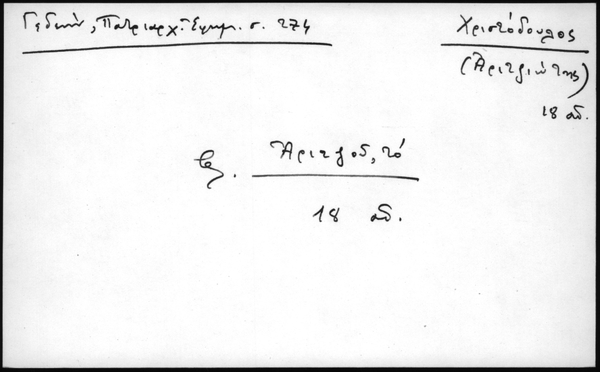 Γεδεών, Πατριαρχ. Εφημ. σ. 274
Χριστόδουλος
(Ἀριτζιώτης)
18 αἰ.
βλ. Ἀριτζοῦ, τό
18 αἰ.